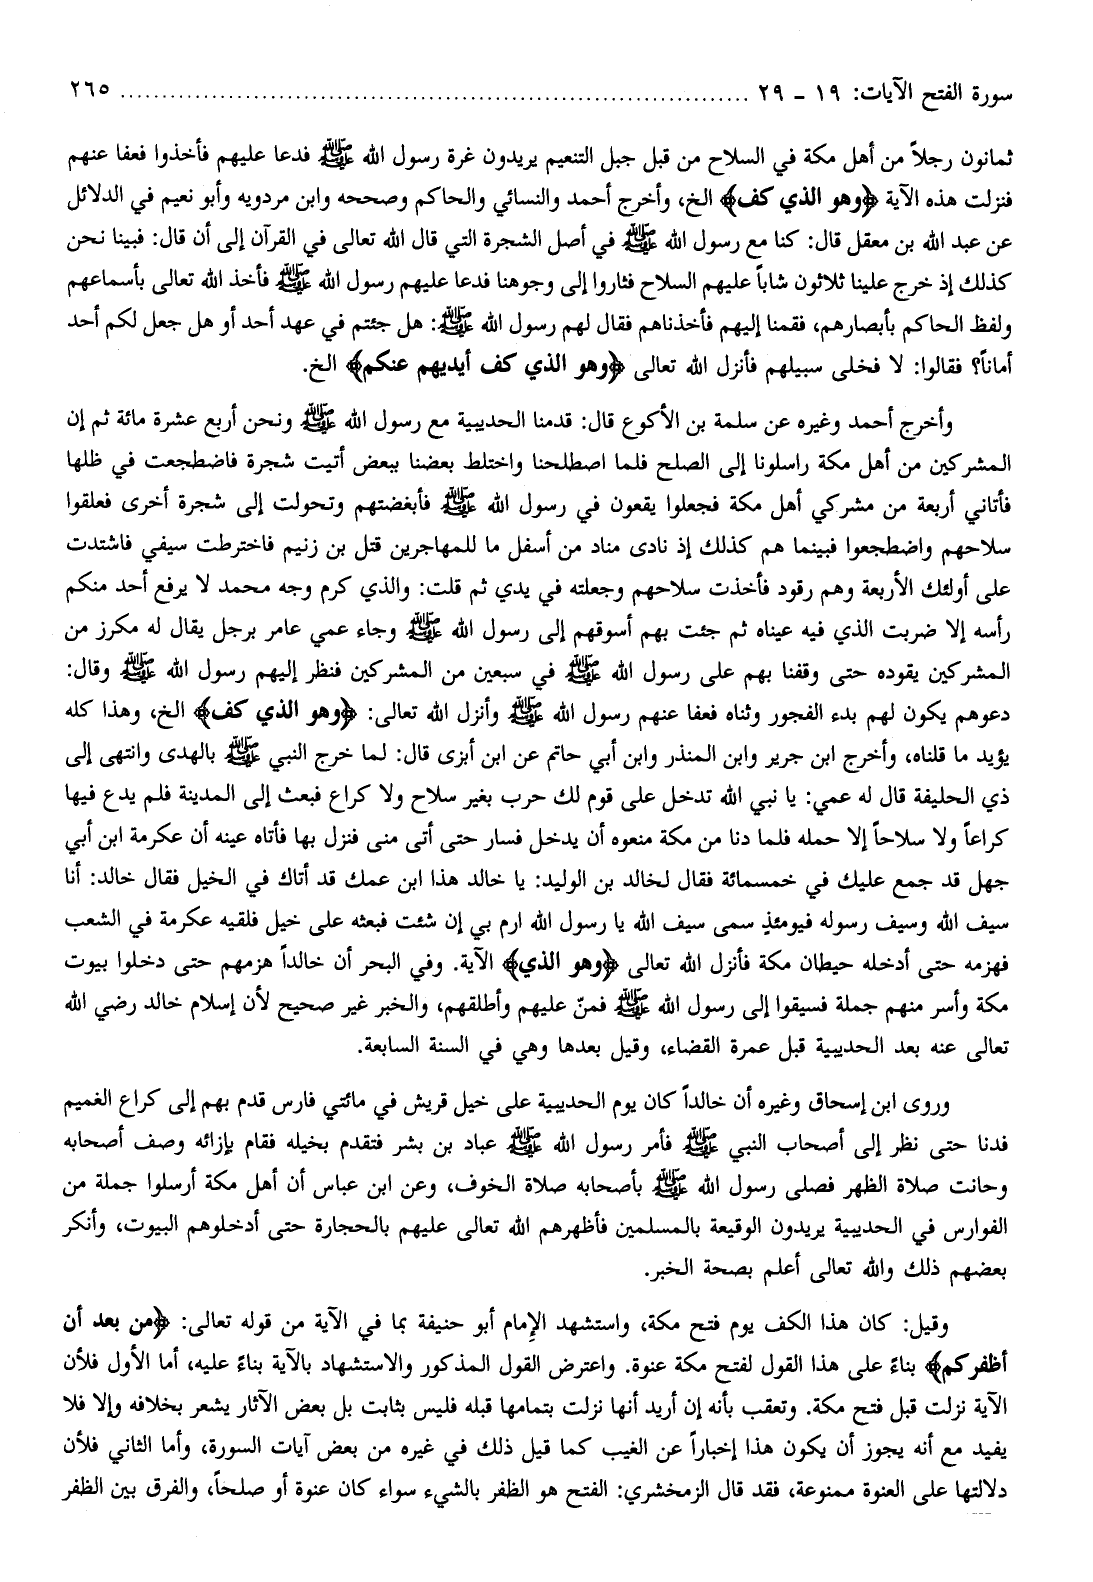 سورة الفتح الآيات: ١٩ ـ ٢٩ ................................................................ ٢٦٥
ثمانون رجلاً من أهل مكة في السلاح من قبل جبل التنعيم يريدون غرة رسول الله ﷺ فدعا عليهم فأخذوا فعفا عنهم
فنزلت هذه الآية ﴿وهو الذي كف﴾ الخ، وأخرج أحمد والنسائي والحاكم وصححه وابن مردويه وأبو نعيم في الدلائل
عن عبد الله بن معقل قال: كنا مع رسول الله ﷺ في أصل الشجرة التي قال الله تعالى في القرآن إلى أن قال: فبينا نحن
كذلك إذ خرج علينا ثلاثون شاباً عليهم السلاح فثاروا إلى وجوهنا فدعا عليهم رسول الله ﷺ فأخذ الله تعالى بأسماعهم
ولفظ الحاكم بأبصارهم، فقمنا إليهم فأخذناهم فقال لهم رسول الله ﷺ: هل جئتم في عهد أحد أو هل جعل لكم أحد
أماناً؟ فقالوا: لا فخلى سبيلهم فأنزل الله تعالى ﴿وهو الذي كف أيديهم عنكم﴾ الخ.
وأخرج أحمد وغيره عن سلمة بن الأكوع قال: قدمنا الحديبية مع رسول الله ﷺ ونحن أربع عشرة مائة ثم إن
المشركين من أهل مكة راسلونا إلى الصلح فلما اصطلحنا واختلط بعضنا ببعض أتيت شجرة فاضطجعت في ظلها
فأتاني أربعة من مشركي أهل مكة فجعلوا يقعون في رسول الله ﷺ فأبغضتهم وتحولت إلى شجرة أخرى فعلقوا
سلاحهم واضطجعوا فبينما هم كذلك إذ نادى مناد من أسفل ما للمهاجرين قتل بن زنيم فاخترطت سيفي فاشتدت
على أولئك الأربعة وهم رقود فأخذت سلاحهم وجعلته في يدي ثم قلت: والذي كرم وجه محمد لا يرفع أحد منكم
رأسه إلا ضربت الذي فيه عيناه ثم جئت بهم أسوقهم إلى رسول الله ﷺ وجاء عمي عامر برجل يقال له مكرز من
المشركين يقوده حتى وقفنا بهم على رسول الله ﷺ في سبعين من المشركين فنظر إليهم رسول الله ﷺ وقال:
دعوهم يكون لهم بدء الفجور وثناه فعفا عنهم رسول الله ﷺ وأنزل الله تعالى: ﴿وهو الذي كف﴾ الخ، وهذا كله
يؤيد ما قلناه، وأخرج ابن جرير وابن المنذر وابن أبي حاتم عن ابن أبزى قال: لما خرج النبي ﷺ بالهدى وانتهى إلى
ذي الحليفة قال له عمي: يا نبي الله تدخل على قوم لك حرب بغير سلاح ولا كراع فبعث إلى المدينة فلم يدع فيها
كراعاً ولا سلاحاً إلا حمله فلما دنا من مكة منعوه أن يدخل فسار حتى أتى منى فنزل بها فأتاه عينه أن عكرمة ابن أبي
جهل قد جمع عليك في خمسمائة فقال لخالد بن الوليد: يا خالد هذا ابن عمك قد أتاك في الخيل فقال خالد: أنا
سيف الله وسيف رسوله فيومئذٍ سمى سيف الله يا رسول الله ارم بي إن شئت فبعثه على خيل فلقيه عكرمة في الشعب
فهزمه حتى أدخله حيطان مكة فأنزل الله تعالى ﴿وهو الذي﴾ الآية. وفي البحر أن خالداً هزمهم حتى دخلوا بيوت
مكة وأسر منهم جملة فسيقوا إلى رسول الله ﷺ فمنّ عليهم وأطلقهم، والخبر غير صحيح لأن إسلام خالد رضي الله
تعالى عنه بعد الحديبية قبل عمرة القضاء، وقيل بعدها وهي في السنة السابعة.
وروى ابن إسحاق وغيره أن خالداً كان يوم الحديبية على خيل قريش في مائتي فارس قدم بهم إلى كراع الغميم
فدنا حتى نظر إلى أصحاب النبي ﷺ فأمر رسول الله ﷺ عباد بن بشر فتقدم بخيله فقام بإزائه وصف أصحابه
وحانت صلاة الظهر فصلى رسول الله ﷺ بأصحابه صلاة الخوف، وعن ابن عباس أن أهل مكة أرسلوا جملة من
الفوارس في الحديبية يريدون الوقيعة بالمسلمين فأظهرهم الله تعالى عليهم بالحجارة حتى أدخلوهم البيوت، وأنكر
بعضهم ذلك والله تعالى أعلم بصحة الخبر.
وقيل: كان هذا الكف يوم فتح مكة، واستشهد الإمام أبو حنيفة بما في الآية من قوله تعالى: ﴿من بعد أن
أظفركم﴾ بناءً على هذا القول لفتح مكة عنوة. واعترض القول المذكور والاستشهاد بالآية بناءً عليه، أما الأول فلأن
الآية نزلت قبل فتح مكة. وتعقب بأنه إن أريد أنها نزلت بتمامها قبله فليس بثابت بل بعض الآثار يشعر بخلافه وإلا فلا
يفيد مع أنه يجوز أن يكون هذا إخباراً عن الغيب كما قيل ذلك في غيره من بعض آيات السورة، وأما الثاني فلأن
دلالتها على العنوة ممنوعة، فقد قال الزمخشري: الفتح هو الظفر بالشيء سواء كان عنوة أو صلحاً، والفرق بين الظفر